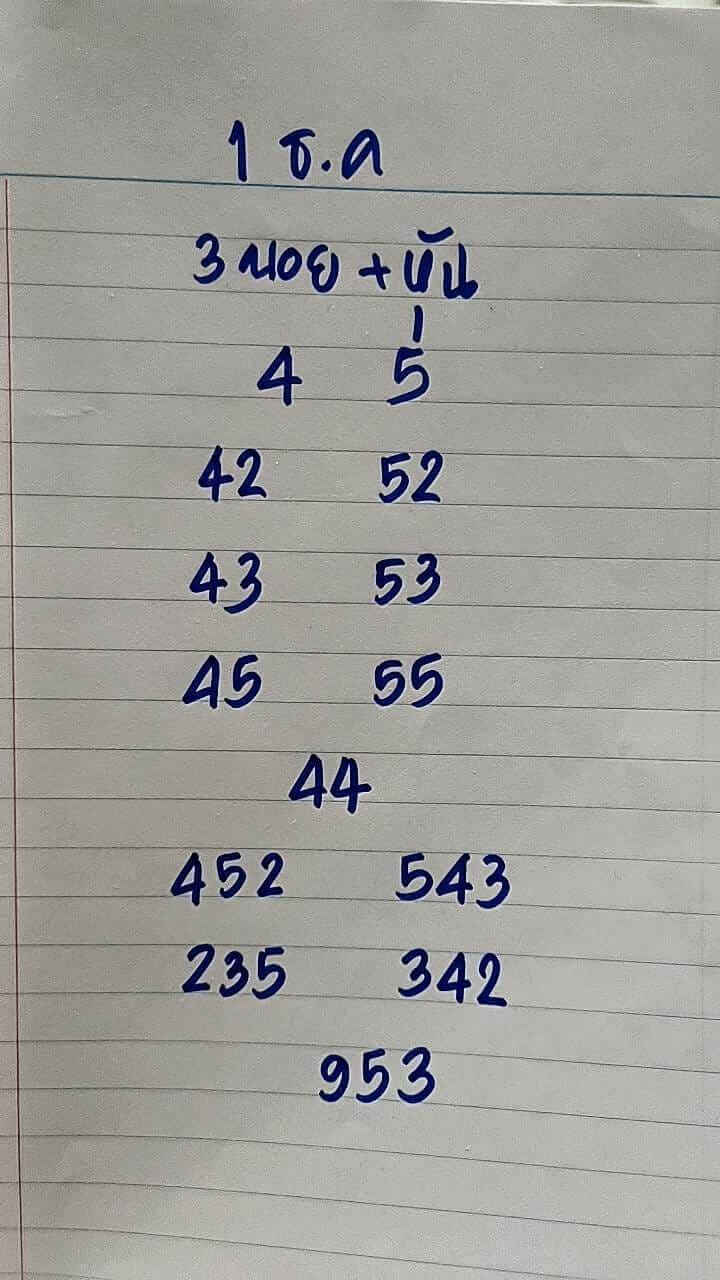 1 ธ.ค
3 พอย + ทัน
4 5
42 52
43 53
45 55
44
452 543
235 342
953